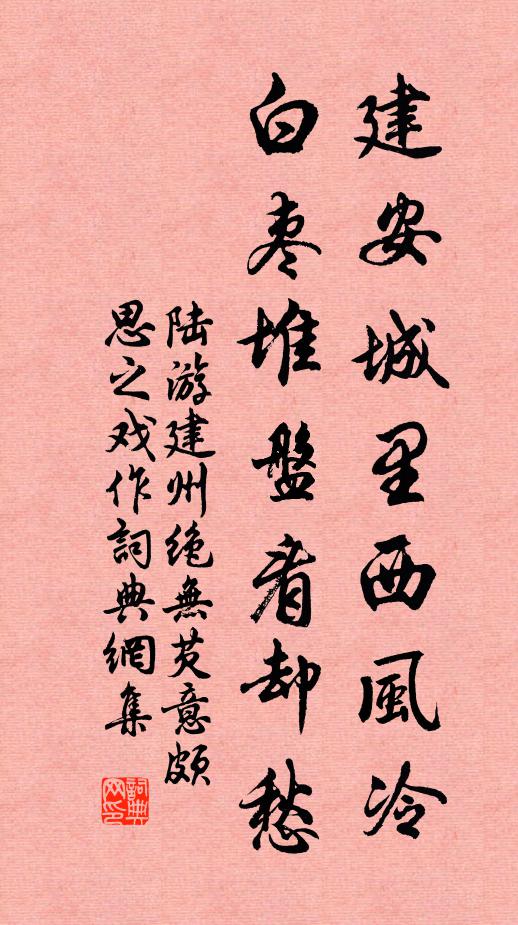 建安城里西風冷
白枣堆盤看却愁
陆游建州绝無芡意颇
思之戏作詞典網集
詞典网印